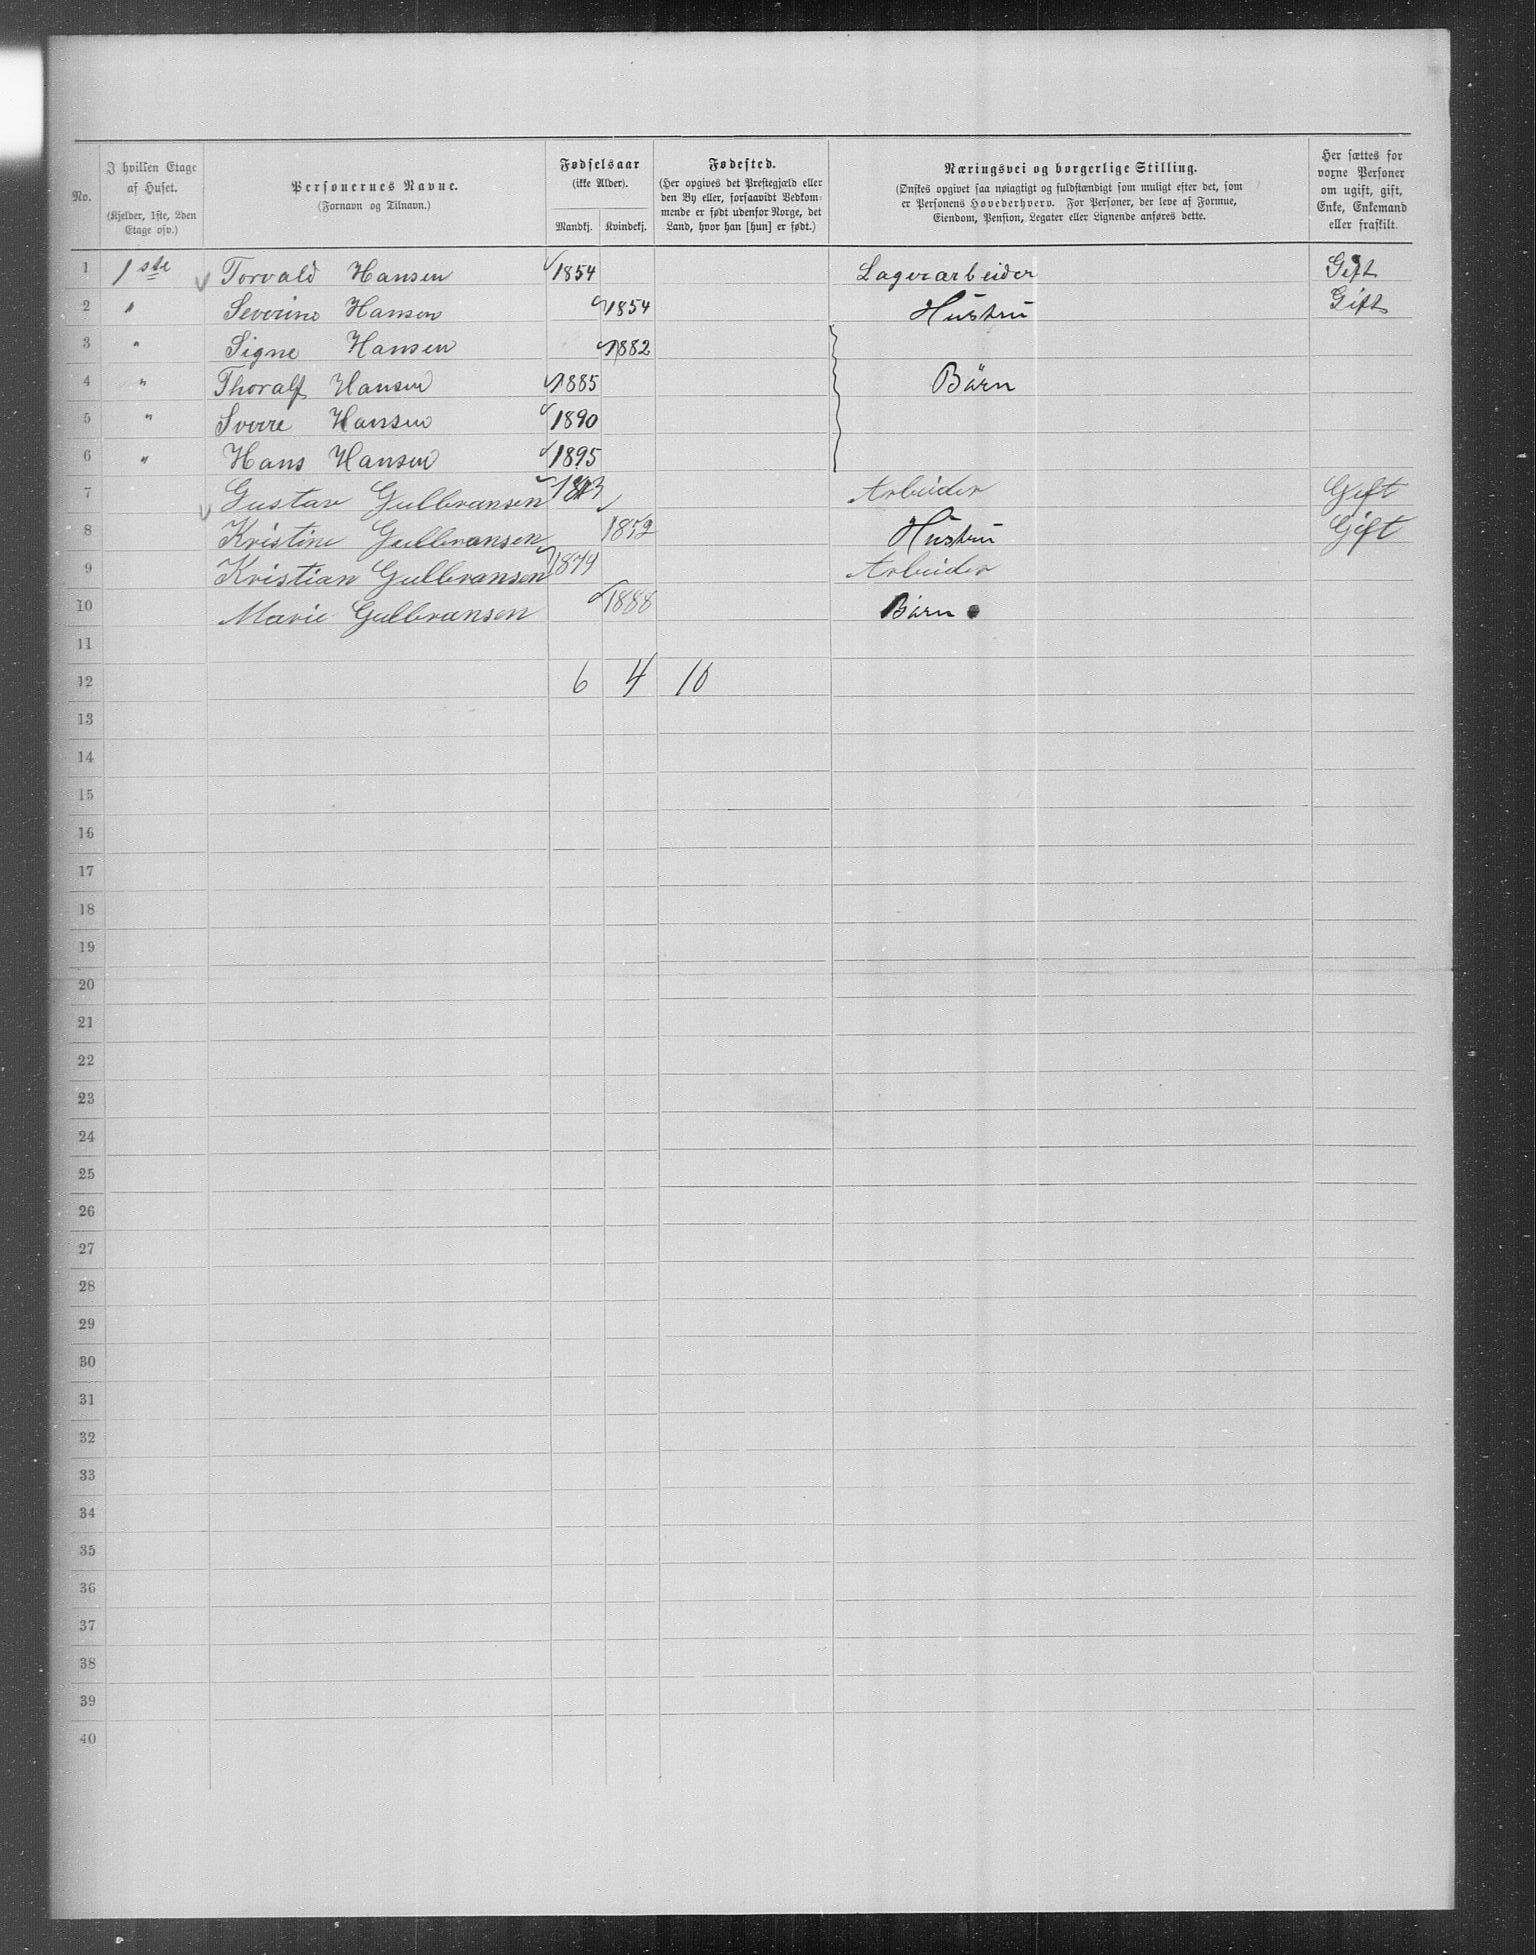 No.
I hvilken Etage af Huset.
(Kjelder, 1ste, 2den Etage osv.)
Personernes Navne.
(Fornavn og Tilnavn.)
Fødselsaar
(ikke Alder).
Mandkj. Kvindekj.
Fødested.
(Her opgives det Prestegjæld eller
den By eller, forsaavidt Vedkom-
mende er født udenfor Norge, det
Land, hvor han [hun] er født.)
Næringsvei og borgerlige Stilling.
(Ønskes opgivet saa nøiagtigt og fuldstændigt som muligt efter det, som
er Personens Hovederhverv. For Personer, der leve af Formue,
Eiendom, Pension, Legater eller Lignende anføres dette.
Her sættes for
voxne Personer
om ugift, gift,
Enke, Enkemand
eller fraskilt.
1 1ste Torvald Hansen 1854 Lagerarbeider Gift
2 " Severine Hansen 1854 Hustru Gift
3 " Signe Hansen 1882
4 " Thoralf Hansen 1885 Börn
5 " Sverre Hansen 1890
6 " Hans Hansen 1895
7 Gustav Gulbransen Arbeider Gift
8 Kristine Gulbransen 1852 Hustru Gift
9 Kristian Gulbransen 1879 Arbeider
10 Marie Gulbransen 1888 Barn
11
12 6 4 10
13
14
15
16
17
18
19
20
21
22
23
24
25
26
27
28
29
30
31
32
33
34
35
36
37
38
39
40